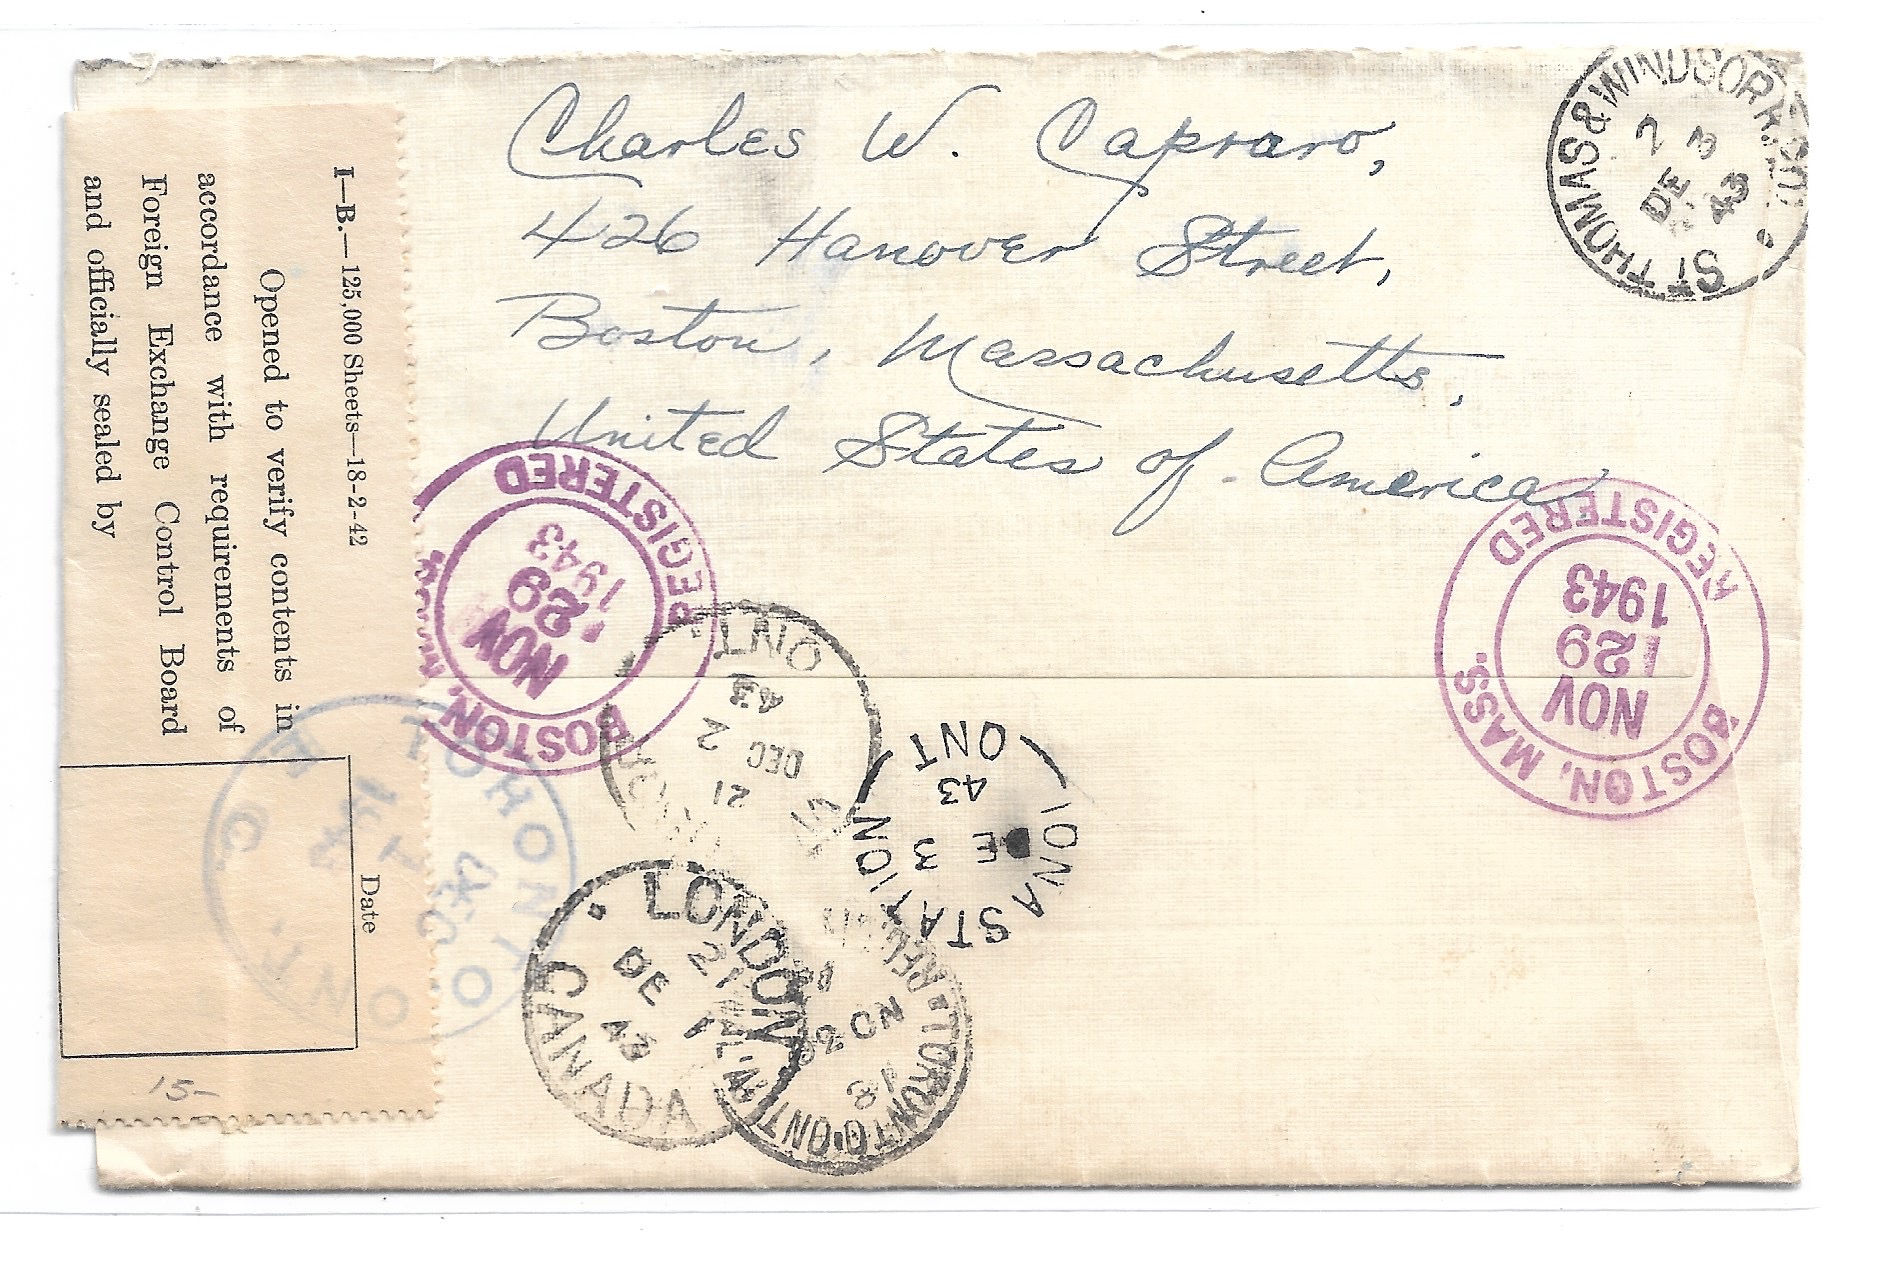 Charles W. Capraro,
426 Hanover Street,
Boston, Massachusetts,
United States of America
I—B.—125,000 Sheets—18-2-42
Opened to verify contents in
accordance with requirements of
Foreign Exchange Control Board
and officially sealed by
Date
15-
ST THOMAS & WINDSOR R.P.O.
DE 3
43
BOSTON, MASS.
REGISTERED
NOV
29
1943
BOSTON, MASS.
REGISTERED
NOV
29
1943
ONT
21
DEC 2
43
IONA STATION
ONT
3
43
LONDON
CANADA
21
DE 1
43
TORONTO, ONT.
NO
TORONTO
ONT.